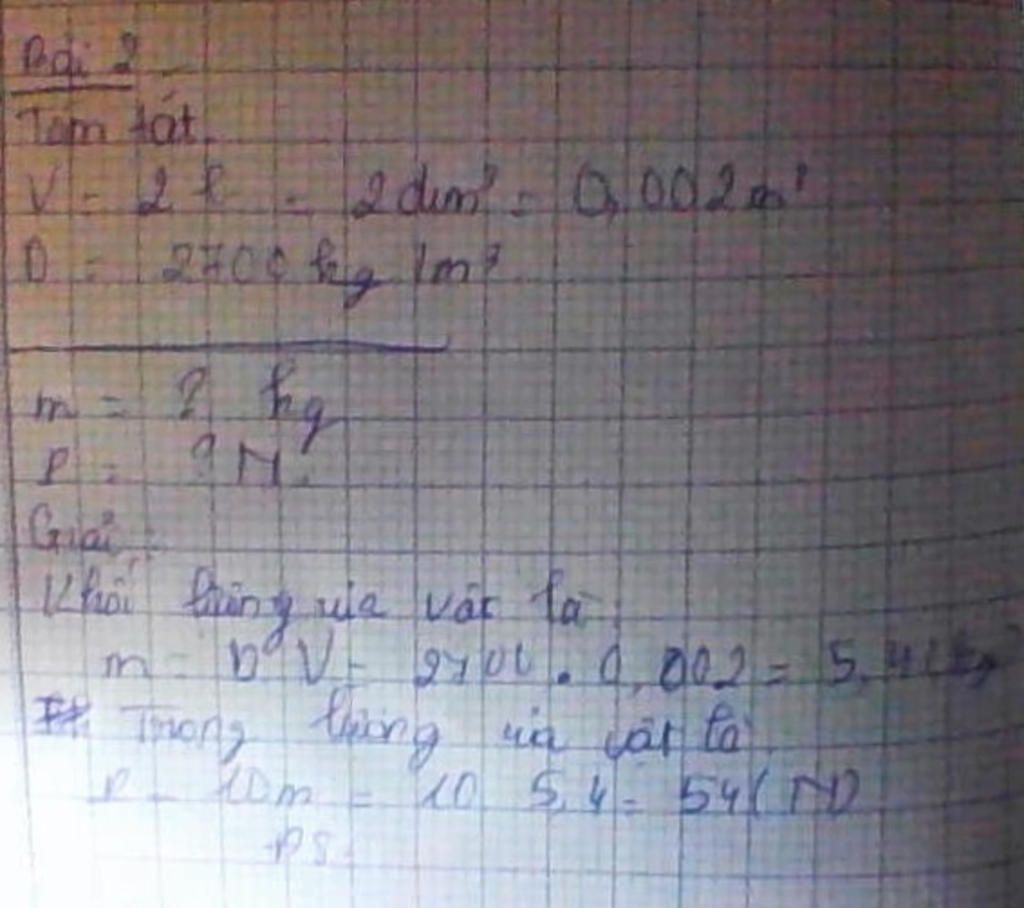 Bài 2
Tóm tắt
V = 2 l = 2 dm³ = 0,002 m³
D = 2700 kg /m³
m = ? kg
P = ? N.
Giải:
Khối lượng của vật là
m = D V = 2700 . 0,002 = 5,4 (kg
Trọng lượng của vật là
P = 10m = 10 5,4 = 54 (N)
ĐS